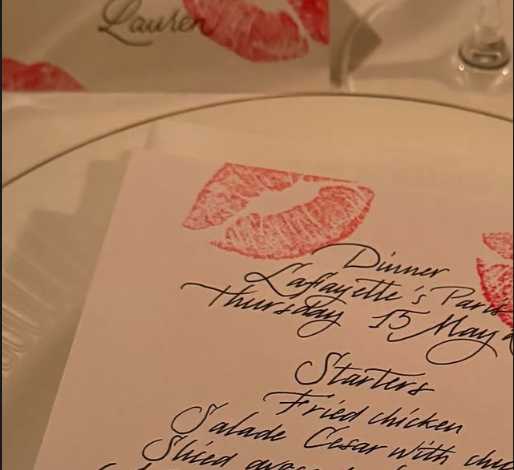 Lauren
Dinner
Laffayette's Paris
Thursday 15 May
Starters
Fried chicken
Salade Cesar with
Sliced